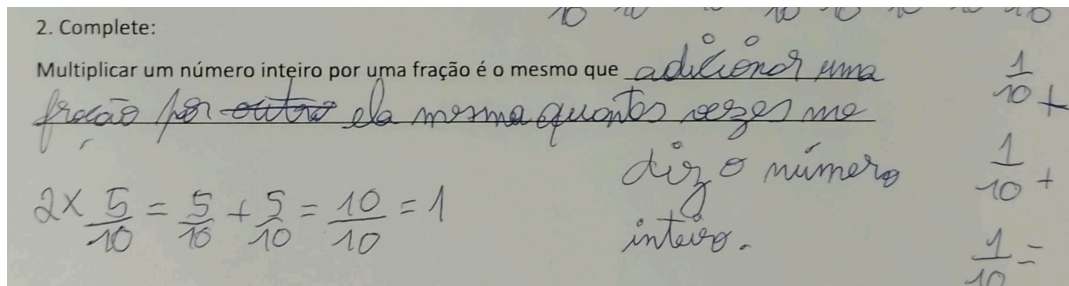 2. Complete:
Multiplicar um número inteiro por uma fração é o mesmo que adicionar uma
fração por outro ela mesma quantas vezes me
diz o número
inteiro.
2 × 5/10 = 5/10 + 5/10 = 10/10 = 1
1/10 +
1/10 +
1/10 =